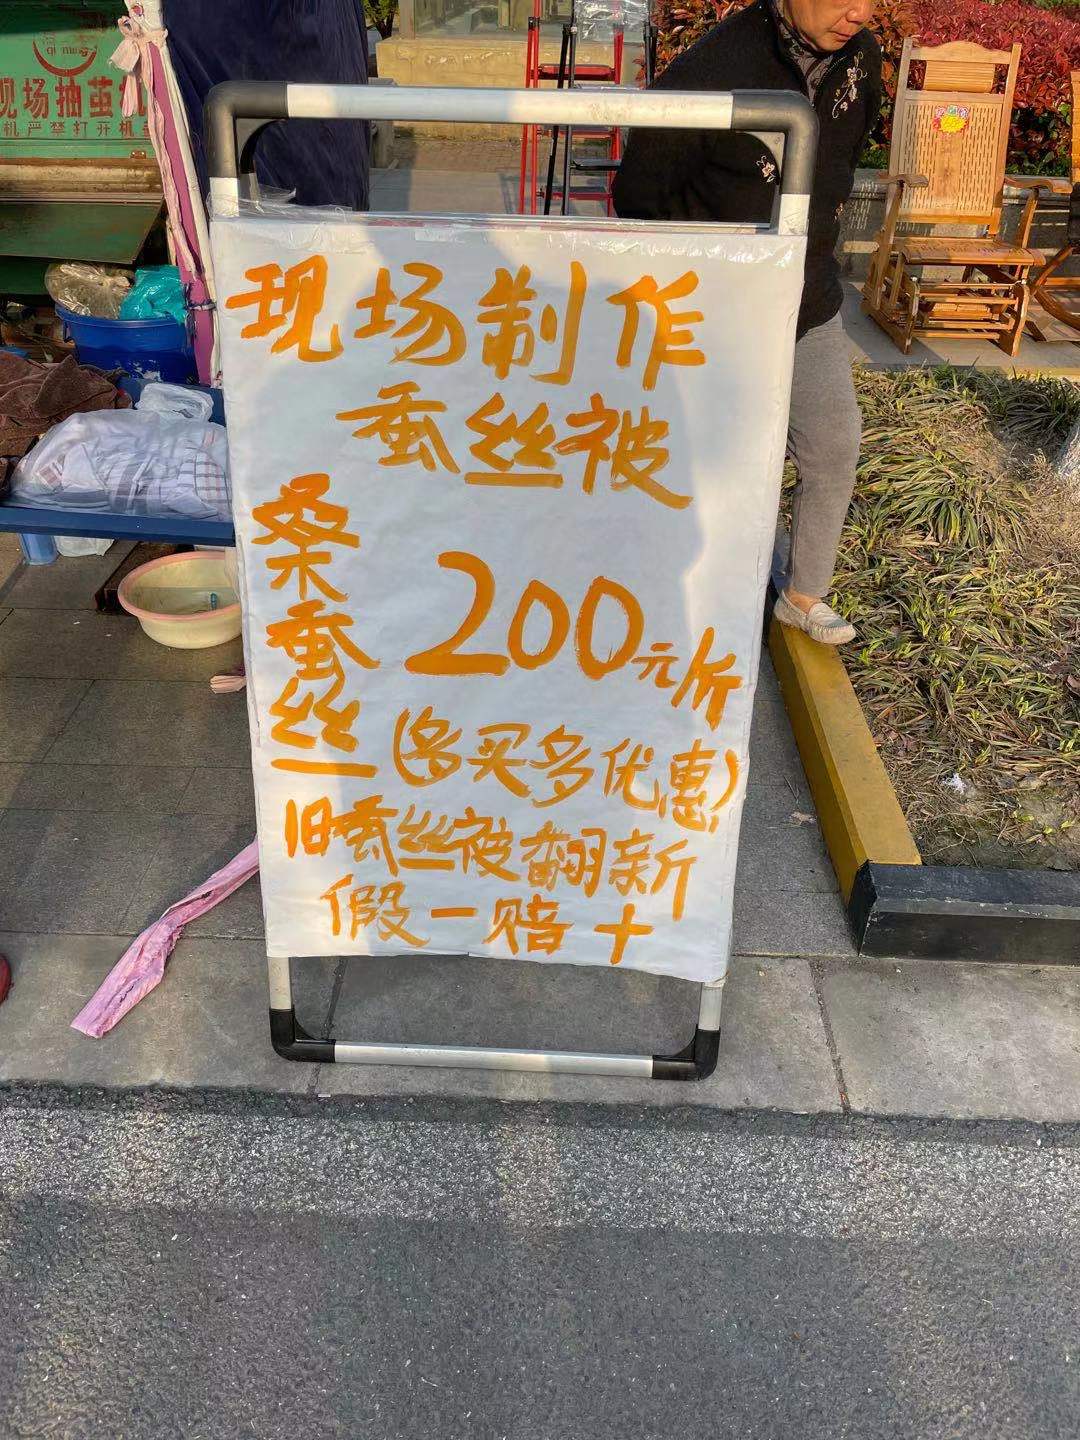 qi
现场抽茧机
机严禁打开机
现场制作
蚕丝被
桑蚕丝
200元/斤
(多买多优惠)
旧蚕丝被翻新
假一赔十